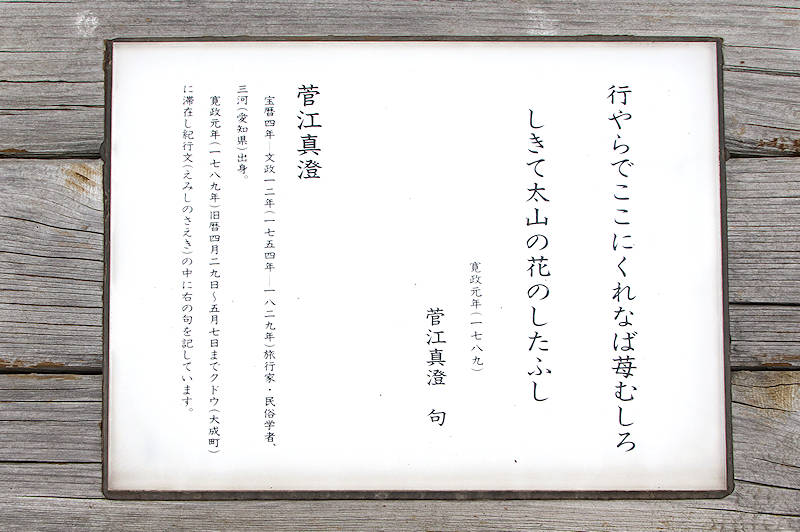 行やらでここにくれなば苺むしろ
しきて太山の花のしたふし
寛政元年(一七八九)
菅江真澄 句
菅江真澄
宝暦四年―文政一二年(一七五四年―一八二九年)旅行家・民俗学者、
三河(愛知県)出身。
寛政元年(一七八九年)旧暦四月二九日～五月七日までクドウ(大成町)
に滞在し紀行文(えみしのさえき)の中に右の句を記しています。